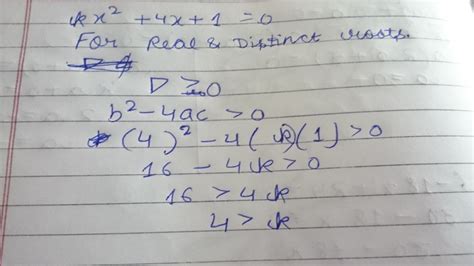 kx² + 4x + 1 = 0
For Real & Distinct roots.
D > 0
b² - 4ac > 0
(4)² - 4(k)(1) > 0
16 - 4k > 0
16 > 4k
4 > k